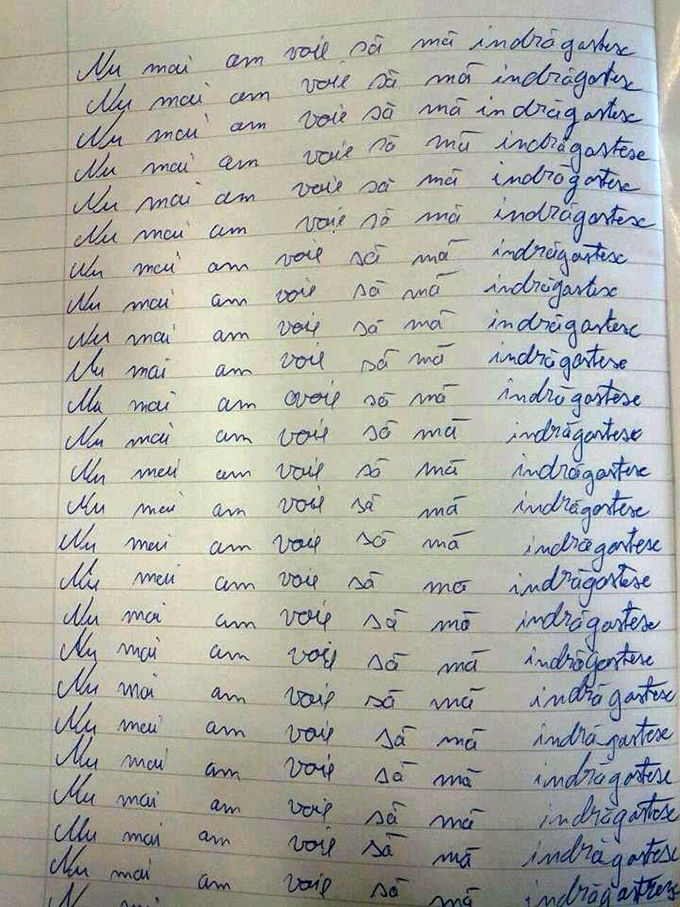 Nu mai am voie să mă indrăgostesc
Nu mai am voie să mă indrăgostesc
Nu mai am voie să mă indrăgostesc
Nu mai am voie să mă indrăgostesc
Nu mai am voie să mă indrăgostesc
Nu mai am voie să mă indrăgostesc
Nu mai am voie să mă indrăgostesc
Nu mai am voie să mă indrăgostesc
Nu mai am voie să mă indrăgostesc
Nu mai am voie să mă indrăgostesc
Nu mai am voie să mă indrăgostesc
Nu mai am voie să mă indrăgostesc
Nu mai am voie să mă indrăgostesc
Nu mai am voie să mă indrăgostesc
Nu mai am voie să mă indrăgostesc
Nu mai am voie să mă indrăgostesc
Nu mai am voie să mă indrăgostesc
Nu mai am voie să mă indrăgostesc
Nu mai am voie să mă indrăgostesc
Nu mai am voie să mă indrăgostesc
Nu mai am voie să mă indrăgostesc
Nu mai am voie să mă indrăgostesc
Nu mai am voie să mă indrăgostesc
Nu mai am voie să mă indrăgostesc